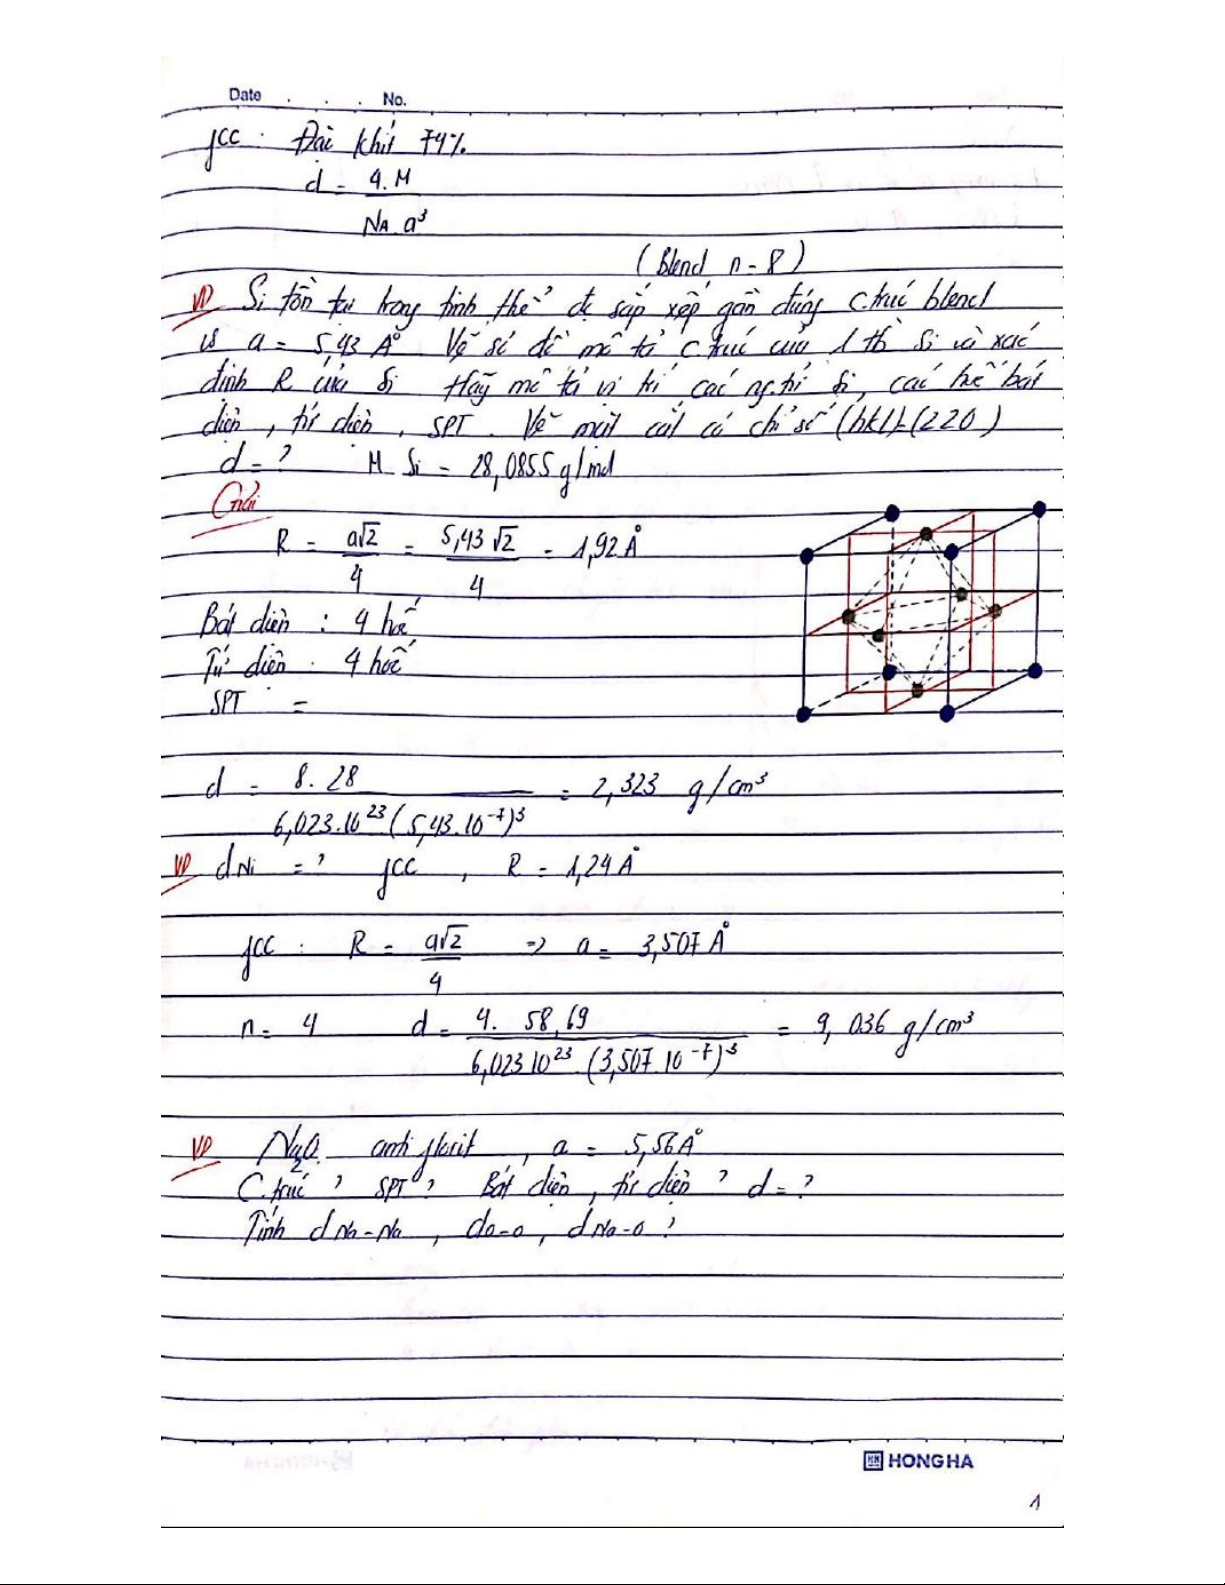 Date . . . No.
fcc : Đặc khít 74%.
d = 4.M
NA a³
(Blend n = 8)
VD Si tồn tại trong tinh thể đc sắp xếp gần đúng c trúc blend
vs a = 5,43 Å Vẽ sơ đồ mô tả c trúc của 1 tb Si và xác
định R của Si Hãy mô tả vị trí các ng.tử Si, các hố bát
diện, tứ diện, SPT. Vẽ mặt cắt có chỉ số (hkl)=(220)
d = ? M Si = 28,0855 g/mol
Giải
R = a√2 / 4 = 5,43 √2 / 4 = 1,92 Å
Bát diện : 4 hố
Tứ diện : 4 hố
SPT =
d = 8. 28 / 6,023.10²³ (5,43.10⁻⁷)³ = 2,323 g/cm³
VD dNi = ? fcc , R = 1,24 Å
fcc : R = a√2 / 4 => a = 3,507 Å
n = 4 d = 4. 58,69 / 6,023 10²³. (3,507.10⁻⁷)³ = 9,036 g/cm³
VD Na₂O. anti florit, a = 5,56 Å
C.trúc ? SPT ? Bát diện, tứ diện ? d = ?
Tính d Na-Na, dO-O, d Na-O ?
HONG HA
1